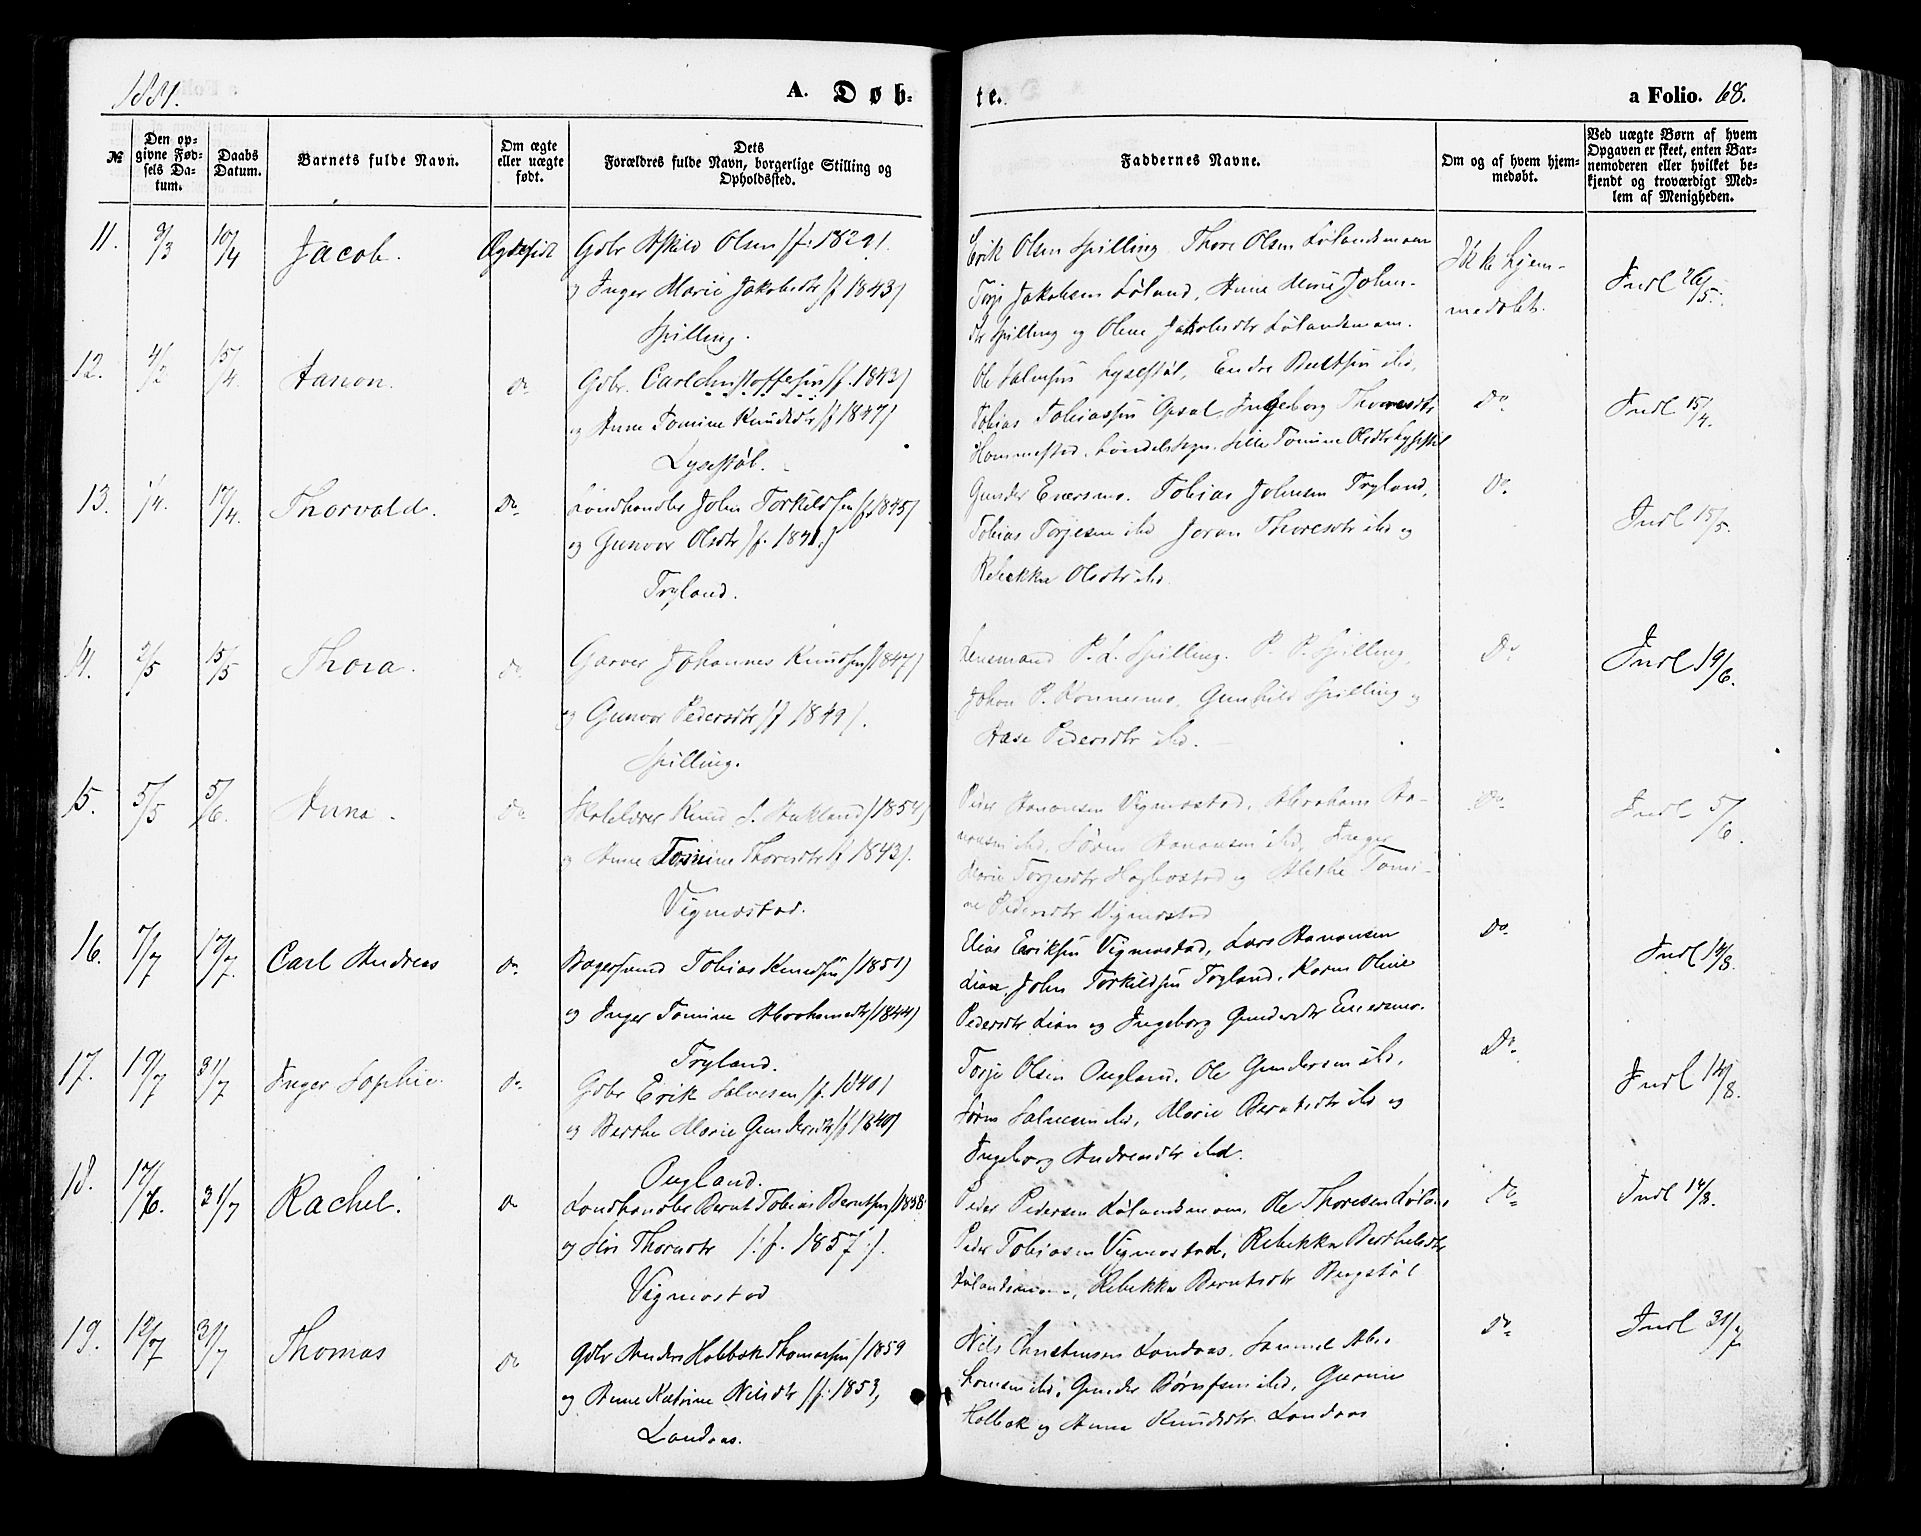 1881.
A. Døb-
te.
a Folio. 68.
№
Den opgivne Fødsels Datum.
Daabs Datum.
Barnets fulde Navn.
Om ægte eller uægte født.
Dets Forældres fulde Navn, borgerlige Stilling og Opholdssted.
Faddernes Navne.
Om og af hvem hjemmedøbt.
Ved uægte Børn af hvem Opgaven er skeet, enten Barnemoderen eller hvilket bekjendt og troværdigt Medlem af Menigheden.
11. 9/3 10/4 Jacob. Ægtefødt Gdbr Askild Olsen /f. 1829/.
og Inger Marie Jakobsdtr /f 1843/
Spilling.
Erik Olsen Spilling. Thore Olsen Lølandsmoen
Torje Jakobsen Løland, Anne Marie Johns-
dtr Spilling og Oline Jakobsdtr Lølandsmoen.
Ikke hjem-
medøbt.
Indl 26/5.
12. 4/2 15/4. Aanon. Do Gdbr. Carl Christoffersen /f. 1843/
og Anne Tomine Knudsdtr /f 1847/
Lysestøl.
Ole Salvesen Lysestøl, Endre Berntsen ibd,
Tobias Tobiassen Opsal, Ingeborg Thoresdtr
Hommestad. Søndeledsogn. Tomine Olsdtr Lysestøl
Do.
Indl 15/4.
13. 1/4. 17/4. Thorvald. Do Landhandler John Torkildsen /f 1845/
og Gunvor Olsdtr /f. 1841./
Tryland.
Gunder Eversmo. Tobias Johnsen Tryland,
Tobias Torjesen ibd Joran Thoresdtr ibd og
Rebekka Olsdtr ibd.
Do.
Indl 15/5.
14. 2/5 15/5 Thora. Do Garver Johannes Knudsen /1847/
og Gunvor Pedersdtr /f 1849/.
Spilling.
Lensmand P. L. Spilling. P. P. Spilling,
Johan P. Konnesmo, Gunhild Spilling og
Aase Pedersdtr ibd.
Do
Indl 19/6.
15. 5/5 5/6. Anna. Do Skolelærer Knud S. Aukland /1854/
og Anne Tomine Thoresdtr /f 1843/.
Vigmostad.
Peder Aanonsen Vigmostad, Abraham Aa-
nonsen ibd, Søren Aanonsen ibd, Inger
Marie Torjesdtr Høghostad og Alethe Tomi-
ne Pedersdtr Vigmostad
Do.
Indl 5/6.
16. 7/7 17/7. Carl Andreas Do Bagersvend Tobias Knudsen /1851/
og Inger Tomine Abrahamsdtr /1844/
Tryland.
Elias Eriksen Vigmostad, Lars Aanonsen
Lian, John Torkildsen Tryland, Karen Oline
Pedersdtr Lian og Ingeborg Gundersdtr Eversmo.
Do.
Indl 14/8.
17. 19/7 31/7 Inger Sophie. Do Gdbr Erik Salvesen /f. 1840/
og Berthe Marie Gundersdtr /f 1840/
Augland.
Torje Olsen Augland. Ole Gundersen ibd,
Søren Salvesen ibd, Marie Berntsdtr ibd og
Ingeborg Andreasdtr ibd.
Do.
Indl 14/8.
18. 17/6. 31/7 Rachel. Do Landhandler Bernt Tobias Berntsen /1838
og Siri Thorsdtr /: f. 1857 :/.
Vigmostad
Peder Pedersen Lølandsmoen, Ole Thoresen Løland
Peder Tobiasen Vigmostad, Rebekka Berthelsdtr
Lølandsmoen, Rebekka Berntsdtr Bergstøl
Do
Indl 14/8.
19. 12/7 31/7 Thomas Do Gdbr Anders Holbæk Thomassen /1859
og Anne Katrine Nilsdtr /f. 1853,
Landaas.
Nils Christensen Landaas. Samuel Abra
hamsen ibd, Gunder Børufsen ibd, Gurine
Holbæk og Anna Knudsdtr. Landaas
Do
Indl 31/7.